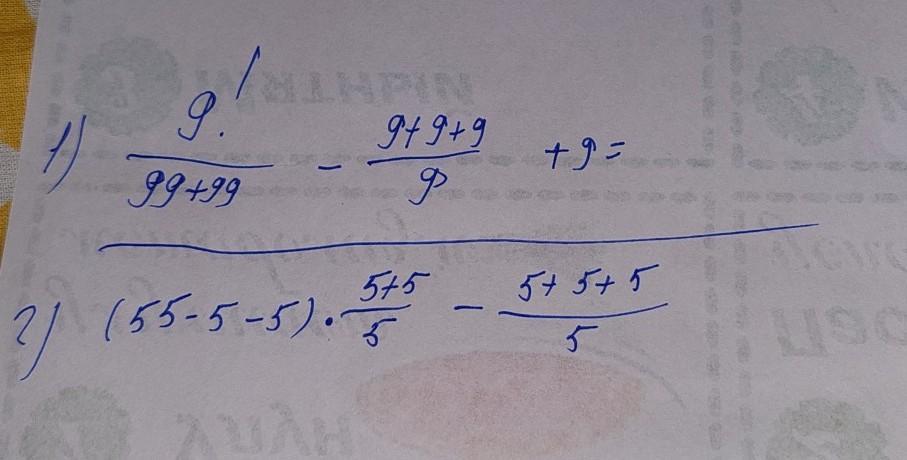 1) 9! / (99+99) - (9+9+9) / 9 + 9 =
2) (55-5-5) · (5+5) / 5 - (5+5+5) / 5